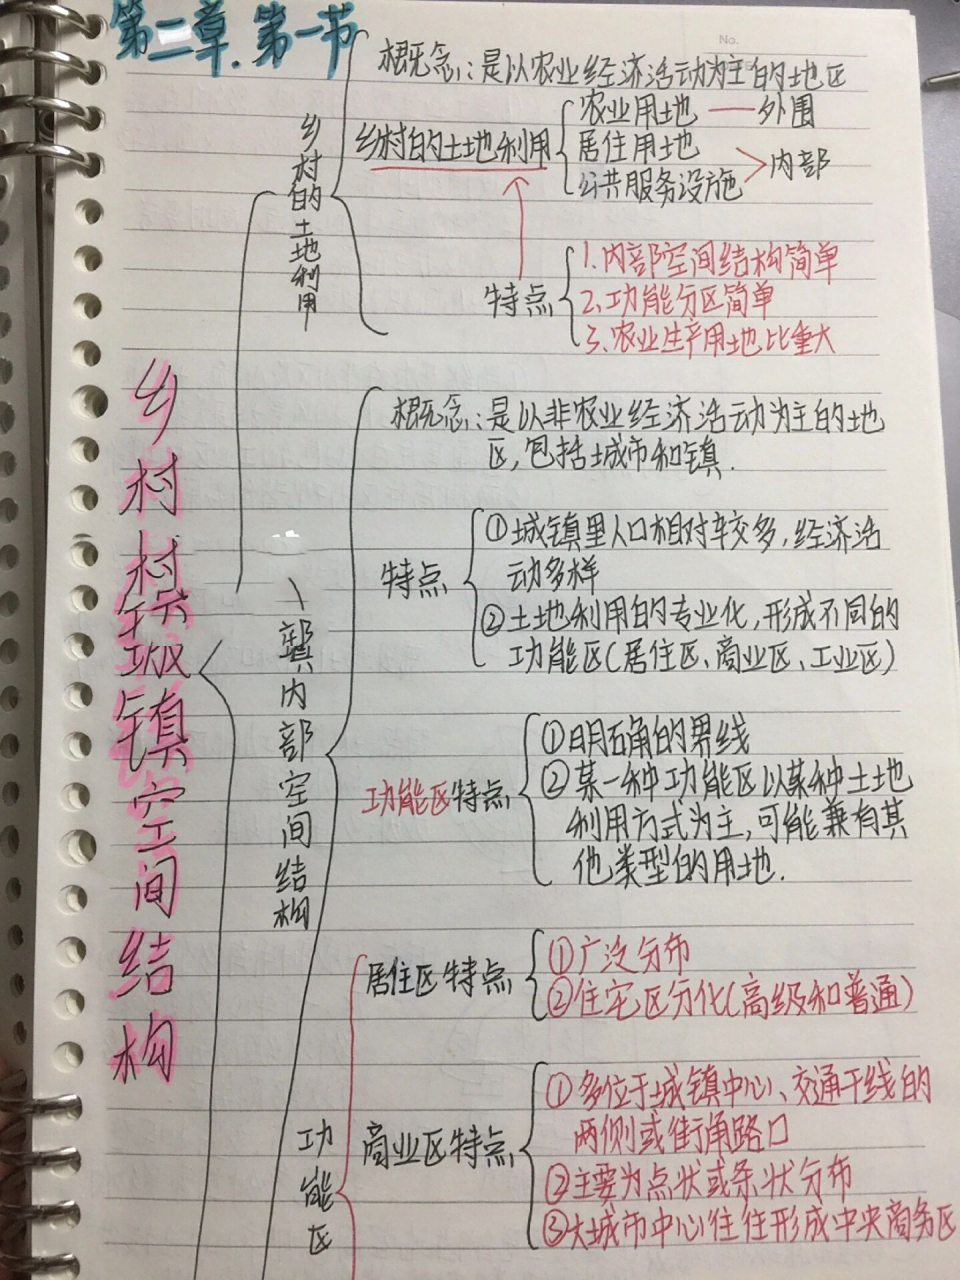 第二章.第一节
No.
概念:是以农业经济活动为主的地区
乡村的土地利用
乡村的土地利用
农业用地 — 外围
居住用地
公共服务设施
内部
特点
1.内部空间结构简单
2.功能分区简单
3.农业生产用地比重大
乡村
城镇空间结构
概念:是以非农业经济活动为主的地
区,包括城市和镇.
特点
①城镇里人口相对较多,经济活
动多样
②土地利用的专业化,形成不同的
功能区(居住区、商业区、工业区)
镇内部空间结构
功能区特点
①明确的界线
②某一种功能区以某种土地
利用方式为主,可能兼有其
他类型的用地.
功能区
居住区特点
①广泛分布
②住宅区分化(高级和普通)
商业区特点
①多位于城镇中心、交通干线的
两侧或街角路口
②主要为点状或条状分布
③大城市中心往往形成中央商务区